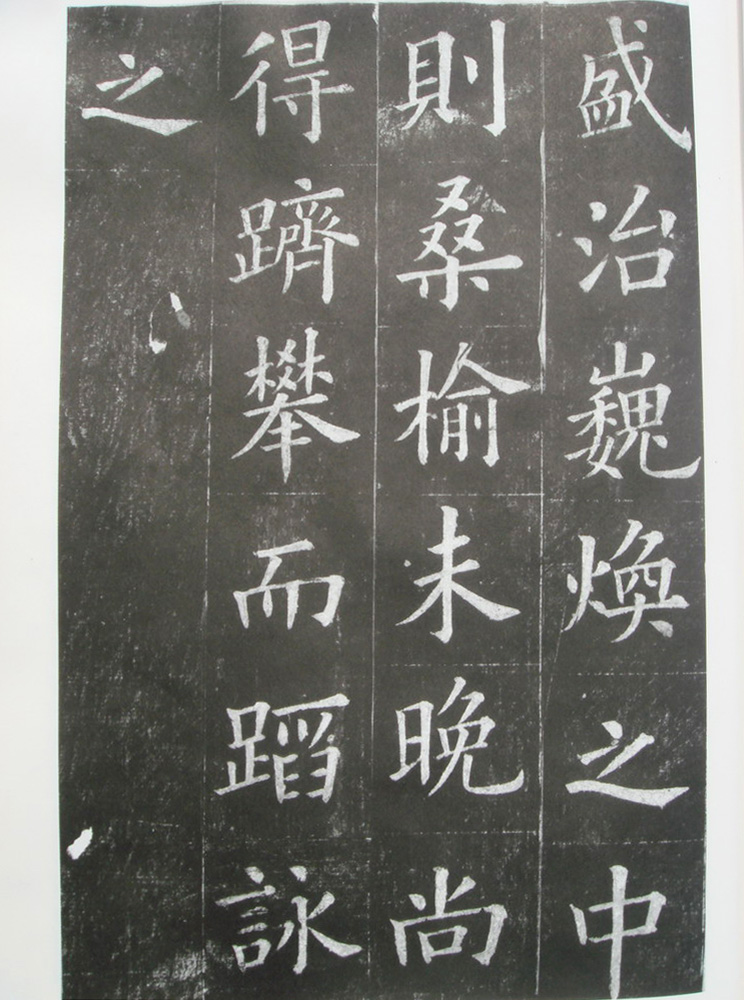 盛治巍煥之中
則桑榆未晚尚
得躋攀而蹈詠
之